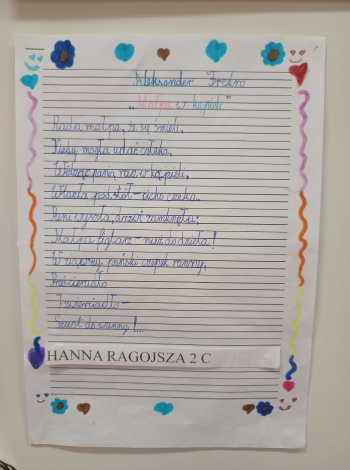 Aleksander Fredro
„Małpa w kąpieli"
Rada małpa, że się śmieli,
Kiedy mogła udać człeka,
Widząc panią raz w kąpieli,
Wlazła pod stół – cicho czeka.
Pani wyszła, drzwi zamknęła;
Małpa figlarz – nuż do dzieła!
Wziąwszy pański czepek ranny,
Prześcieradło
I zwierciadło –
Szust do wanny!...
HANNA RAGOJSZA 2 C